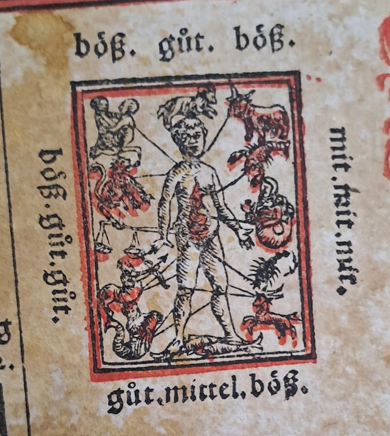 böß. gůt. böß.
böß. gůt. gůt.
mit.
gůt. mittel. böß.